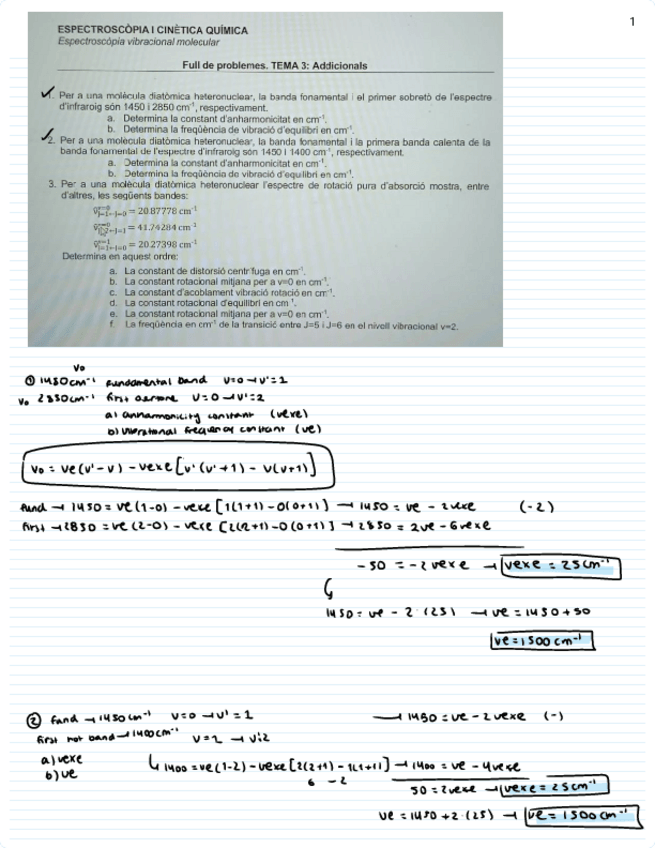 1
ESPECTROSCÒPIA I CINÈTICA QUÍMICA
Espectroscòpia vibracional molecular
Full de problemes. TEMA 3: Addicionals
1. Per a una molècula diatòmica heteronuclear, la banda fonamental i el primer sobretò de l'espectre
d'infraroig són 1450 i 2850 cm⁻¹, respectivament.
a. Determina la constant d'anharmonicitat en cm⁻¹.
b. Determina la freqüència de vibració d'equilibri en cm⁻¹.
2. Per a una molècula diatòmica heteronuclear, la banda fonamental i la primera banda calenta de la
banda fonamental de l'espectre d'infraroig són 1450 i 1400 cm⁻¹, respectivament.
a. Determina la constant d'anharmonicitat en cm⁻¹.
b. Determina la freqüència de vibració d'equilibri en cm⁻¹.
3. Per a una molècula diatòmica heteronuclear l'espectre de rotació pura d'absorció mostra, entre
d'altres, les següents bandes:
= 20.87778 cm⁻¹
= 41.74284 cm⁻¹
= 20.27398 cm⁻¹
Determina en aquest ordre:
a. La constant de distorsió centrífuga en cm⁻¹.
b. La constant rotacional mitjana per a v=0 en cm⁻¹.
c. La constant d'acoblament vibració rotació en cm⁻¹.
d. La constant rotacional d'equilibri en cm⁻¹.
e. La constant rotacional mitjana per a v=0 en cm⁻¹.
f. La freqüència en cm⁻¹ de la transició entre J=5 i J=6 en el nivell vibracional v=2.
V₀
① 1450 cm⁻¹ fundamental band v=0 → v'=1
V₀ 2850 cm⁻¹ first v=0 → v'=2
a) anharmonicity constant (vexe)
b) vibrational frequency constant (ve)
V₀ = ve(v'-v) - vexe[v'(v'+1) - v(v+1)]
fund → 1450 = ve(1-0) - vexe[1(1+1)-0(0+1)] → 1450 = ve - 2vexe (-2)
first → 2850 = ve(2-0) - vexe[2(2+1)-0(0+1)] → 2850 = 2ve - 6vexe
-50 = -2vexe → vexe = 25 cm⁻¹
1450 = ve - 2·(25) → ve = 1450+50
ve = 1500 cm⁻¹
② fund → 1450 cm⁻¹ v=0 → v'=1 → 1450 = ve - 2vexe (-)
first hot band → 1400 cm⁻¹ v=1 → v'=2
a) vexe
b) ve
↳ 1400 = ve(1-2) - vexe[2(2+1) - 1(1+1)] → 1400 = ve - 4vexe
6 - 2
50 = 2vexe → vexe = 25 cm⁻¹
ve = 1450 + 2·(25) → ve = 1500 cm⁻¹